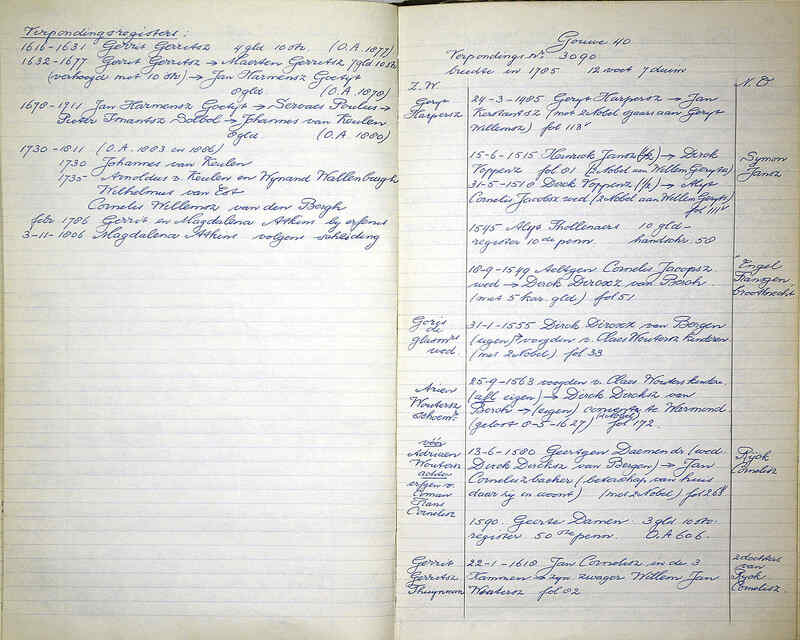 Verpondingsregisters:
1616-1631 Gerrit Gerritsz 4 gld 10 str. (O.A. 1877)
1632-1677 Gerrit Gerritsz → Maerten Gerritsz 7 gld 10 str
(verhoogd met 10 str) → Jan Harmensz Goetijt
8 gld (O.A. 1878)
1678-1711 Jan Harmensz Goetijt → Servaes Poulus →
Pieter Imantsz Dolbol → Johannes van Keulen
8 gld (O.A. 1880)
1730-1811 (O.A. 1883 en 1886)
1730 Johannes van Keulen
1735 Arnoldus v. Keulen en Wynand Wallenburgh
Wilhelmus van Est
Cornelis Willemsz van den Bergh
febr 1786 Gerrit en Magdalena Atkins by erfenis
3-11-1806 Magdalena Atkins volgens scheiding
Gouwe 40
Verpondings nr. 3090
breedte in 1785 12 voet 7 duim
Z.W.
N.O.
Geryt
Harpersz
24-3-1485 Geryt Harpersz → Jan
Kerstantsz (met 2 Nobel sjaars aan Geryt
Willemsz) fol 113v
15-6-1515 Heinrick Jansz (½) → Dirck
Voppenz fol 81 (2 Nobel aan Willem Gerytsz)
31-5-1518 Derck Voppenz (½) → Alyt
Cornelis Jacobsz wed (2 Nobel aan Willem Geryts)
fol 111v
Symon
Jansz
1545 Alyt Thollenaers 10 gld-
register 10de penn. handschr. 58
18-9-1549 Aeltgen Cornelis Jacopsz.
wed → Derck Dircxz van Berch
(met 5 kar. gld) fol 51
Engel
Fransen
Grootbrecht
Goris
de
glasm's
wed.
31-1-1555 Dirck Dircxz van Bergen
(eigen) → voogden v. Claes Woutersz kinderen
(met 2 Nobel) fol 33
Arien
Woutersz
schoenmr
25-9-1563 voogden v. Claes Wouters kinderen
(zelf eigen) → Dirck Dircksz van
Berch → (eigen) convent te Warmond.
(gelost 8-5-1627) (2 Nobel) fol 172.
vóór
Adriaen
Woutersz
achter
erfgen v.
Coman
Frans
Cornelisz
13-6-1580 Geertgen Daemen dr. (wed.
Dirck Dircksz van Bergen) → Jan
Cornelisz backer (belastschap van huis
daer zy in woont) (met 2 Nobel) fol 268
Rijck
Cornelisz
1590. Geerte Damen. 3 gld 10 str.
register 50ste penn. O.A 606.
Gerrit
Gerritsz
Thuynman
22-1-1618 Jan Cornelisz in de 3
Kannen → zyn zwager Willem Jan
Woutersz fol 82
2 dochters
van
Rijck
Cornelisz.